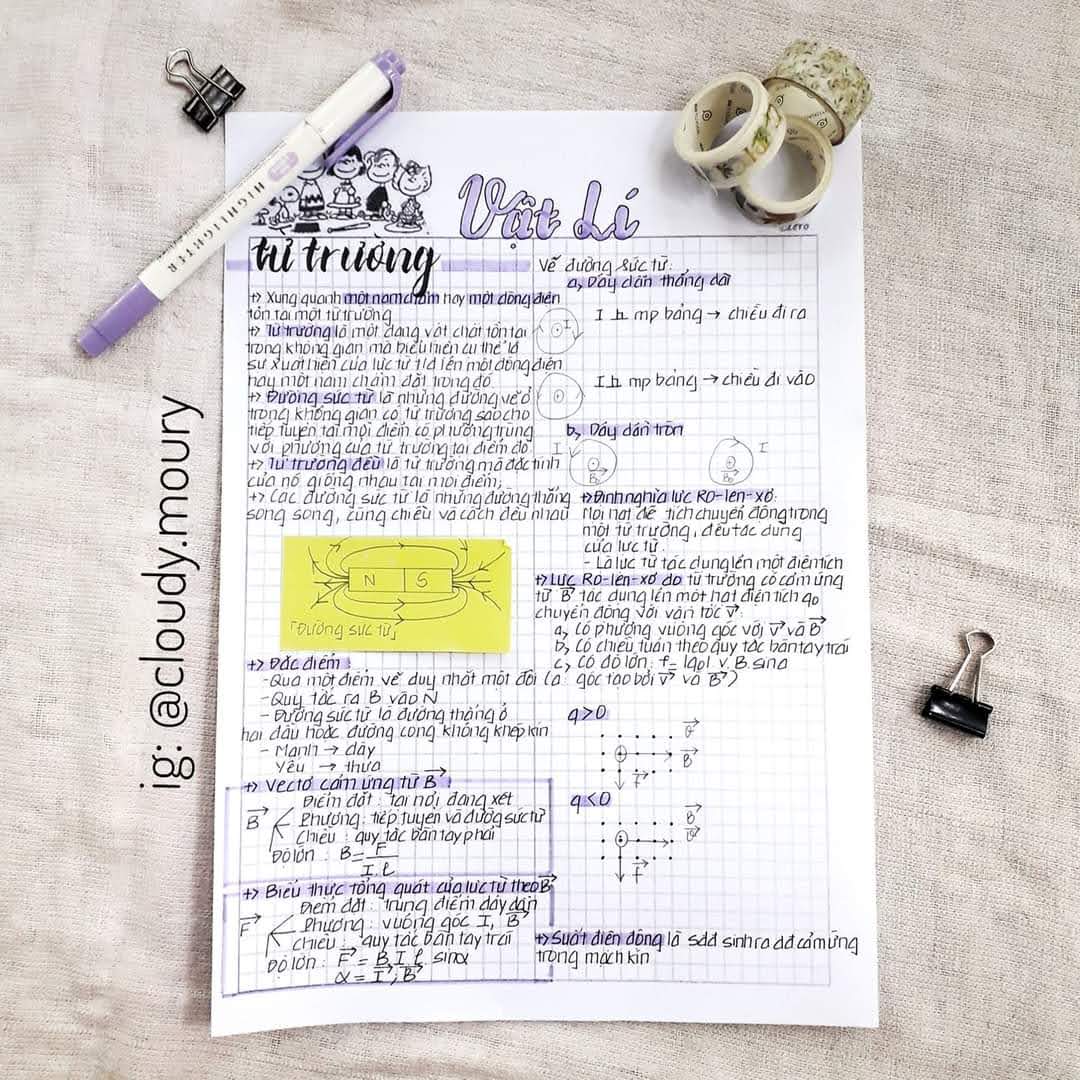 HIGHLIGHTER
ig: @cloudy.moury
Vật Lí
từ trường
+> Xung quanh một nam châm hay một dòng điện
tồn tại một từ trường
+> Từ trường là một dạng vật chất tồn tại
trong không gian mà biểu hiện cụ thể là
sự xuất hiện của lực từ t/d lên một dòng điện
hay một nam châm đặt trong đó
+> Đường sức từ là những đường vẽ ở
trong không gian có từ trường sao cho
tiếp tuyến tại mọi điểm có phương trùng
với phương của từ trường tại điểm đó
+> Từ trường đều là từ trường mà đặc tính
của nó giống nhau tại mọi điểm;
+> Các đường sức từ là những đường thẳng
song song, cùng chiều và cách đều nhau
N S
「Đường sức từ」
+> Đặc điểm:
- Qua một điểm vẽ duy nhất một đối
- Quy tắc ra B vào N
- Đường sức từ là đường thẳng ở
hai đầu hoặc đường cong không khép kín
- Mạnh → dày
Yếu → thưa
+> Vectơ cảm ứng từ B
B
Điểm đặt : tại nơi đang xét
Phương : tiếp tuyến và đường sức từ
Chiều : quy tắc bàn tay phải
Độ lớn : B = F
I.l
+> Biểu thực tổng quát của lực từ theo B
F
Điểm đặt : trung điểm dây dẫn
Phương : vuông góc I, B
chiều : quy tắc bàn tay trái
Độ lớn : F = B.I.l sinα
α = I, B
Vẽ đường sức từ:
a, Dây dẫn thẳng dài
I mp bảng → chiều đi ra
I
I mp bảng → chiều đi vào
b, Dây dẫn tròn
I
I
+> Định nghĩa lực Rơ-len-xơ:
Mọi hạt để tích chuyển động trong
một từ trường, đều tác dụng
của lực từ.
- Là lực từ tác dụng lên một điện tích
+> Lực Rơ-len-xơ do từ trường có cảm ứng
từ B tác dụng lên một hạt điện tích q0
chuyển động với vận tốc v:
a, Có phương vuông góc với v và B
b, Có chiều tuân theo quy tắc bàn tay trái
c, Có độ lớn: f = |q0| v. B sinα
(α: góc tạo bởi v và B)
q>0
v
B
F
q<0
B
v
F
+> Suất điện động là sđđ sinh ra dđ cảm ứng
trong mạch kín